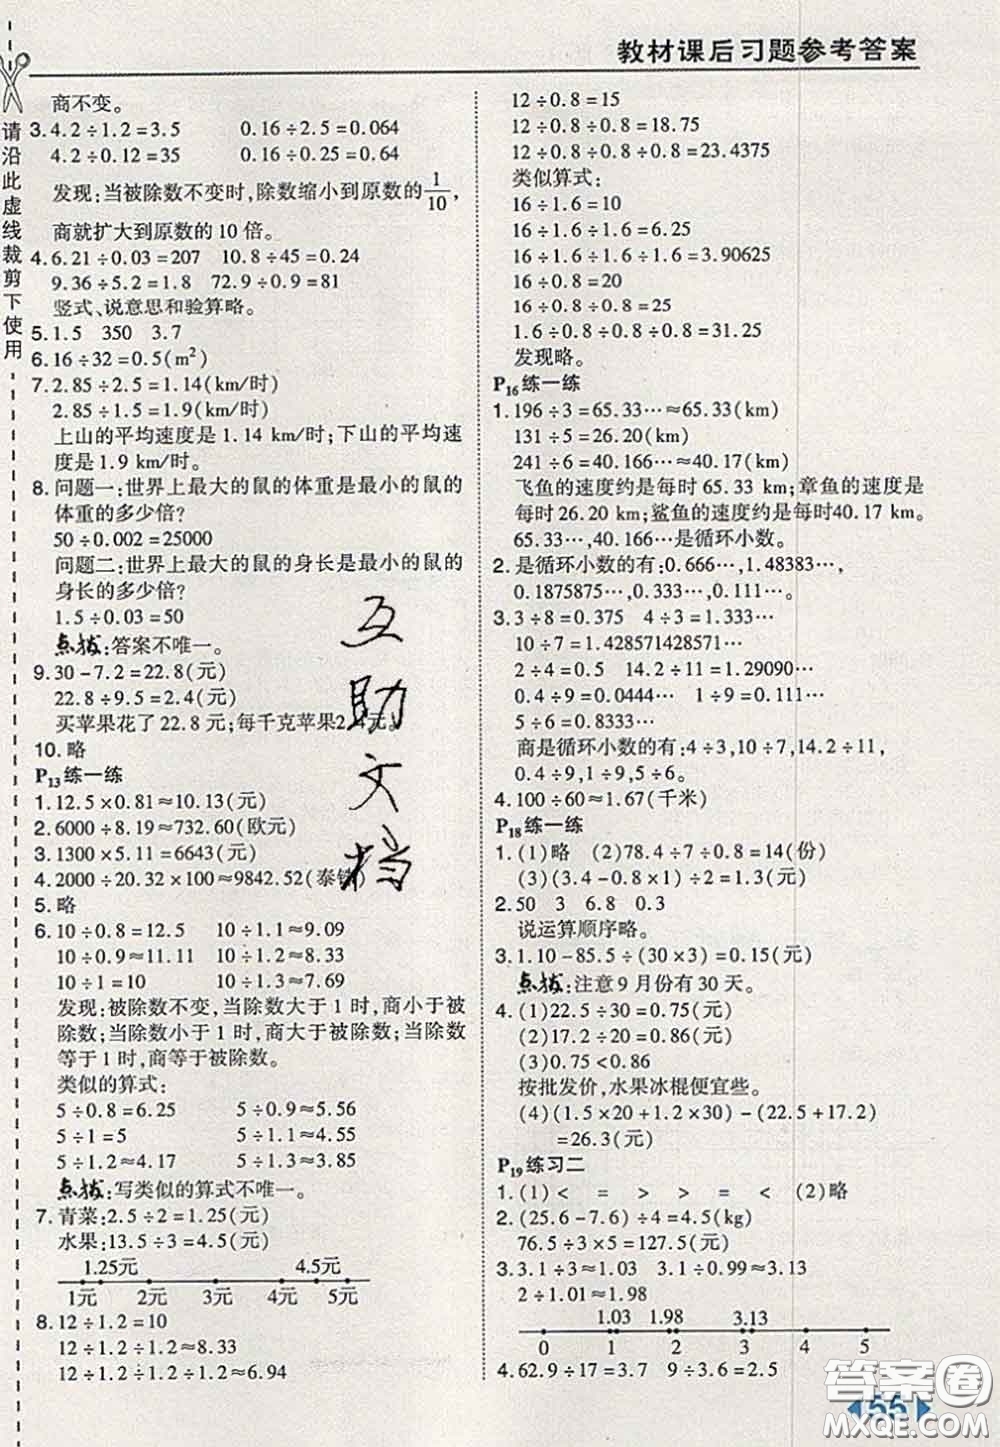 教材课后习题参考答案
请沿此虚线裁剪下使用
商不变。
3. 4.2÷1.2=3.5 0.16÷2.5=0.064
4.2÷0.12=35 0.16÷0.25=0.64
发现:当被除数不变时,除数缩小到原数的1/10,
商就扩大到原数的10倍。
4. 6.21÷0.03=207 10.8÷45=0.24
9.36÷5.2=1.8 72.9÷0.9=81
竖式、说意思和验算略。
5. 1.5 350 3.7
6. 16÷32=0.5(m²)
7. 2.85÷2.5=1.14(km/时)
2.85÷1.5=1.9(km/时)
上山的平均速度是1.14 km/时;下山的平均速
度是1.9 km/时。
8. 问题一:世界上最大的鼠的体重是最小的鼠的
体重的多少倍?
50÷0.002=25000
问题二:世界上最大的鼠的身长是最小的鼠的
身长的多少倍?
1.5÷0.03=50
点拨:答案不唯一。
9. 30-7.2=22.8(元)
22.8÷9.5=2.4(元)
买苹果花了22.8元;每千克苹果2.4元。
10. 略
P13练一练
1. 12.5×0.81≈10.13(元)
2. 6000÷8.19≈732.60(欧元)
3. 1300×5.11=6643(元)
4. 2000÷20.32×100≈9842.52(泰铢)
5. 略
6. 10÷0.8=12.5 10÷1.1≈9.09
10÷0.9≈11.11 10÷1.2≈8.33
10÷1=10 10÷1.3≈7.69
发现:被除数不变,当除数大于1时,商小于被
除数;当除数小于1时,商大于被除数;当除数
等于1时,商等于被除数。
类似的算式:
5÷0.8=6.25 5÷0.9≈5.56
5÷1=5 5÷1.1≈4.55
5÷1.2≈4.17 5÷1.3≈3.85
点拨:写类似的算式不唯一。
7. 青菜:2.5÷2=1.25(元)
水果:13.5÷3=4.5(元)
1.25元 4.5元
1元 2元 3元 4元 5元
8. 12÷1.2=10
12÷1.2÷1.2≈8.33
12÷1.2÷1.2÷1.2≈6.94
12÷0.8=15
12÷0.8÷0.8=18.75
12÷0.8÷0.8÷0.8=23.4375
类似算式:
16÷1.6=10
16÷1.6÷1.6=6.25
16÷1.6÷1.6÷1.6=3.90625
16÷0.8=20
16÷0.8÷0.8=25
1.6÷0.8÷0.8÷0.8=31.25
发现略。
P16练一练
1. 196÷3=65.33…≈65.33(km)
131÷5=26.20(km)
241÷6=40.166…≈40.17(km)
飞鱼的速度约是每时65.33 km;章鱼的速度是
每时26.20 km;鲨鱼的速度约是每时40.17 km。
65.33…,40.166…是循环小数。
2. 是循环小数的有:0.666…,1.48383…,
0.1875875…,0.333…,0.111…。
3. 3÷8=0.375 4÷3=1.333…
10÷7=1.428571428571…
2÷4=0.5 14.2÷11=1.29090…
0.4÷9=0.0444… 1÷9=0.111…
5÷6=0.8333…
商是循环小数的有:4÷3,10÷7,14.2÷11,
0.4÷9,1÷9,5÷6。
4. 100÷60≈1.67(千米)
P18练一练
1. (1)略 (2)78.4÷7÷0.8=14(份)
(3)(3.4-0.8×1)÷2=1.3(元)
2. 50 3 6.8 0.3
说运算顺序略。
3. 1.10-85.5÷(30×3)=0.15(元)
点拨:注意9月份有30天。
4. (1)22.5÷30=0.75(元)
(2)17.2÷20=0.86(元)
(3)0.75<0.86
按批发价,水果冰棍便宜些。
(4)(1.5×20+1.2×30)-(22.5+17.2)
=26.3(元)
P19练习二
1. (1)< = > > = < (2)略
2. (25.6-7.6)÷4=4.5(kg)
76.5÷3×5=127.5(元)
3. 3.1÷3≈1.03 3.1÷0.99≈3.13
2÷1.01≈1.98
1.03 1.98 3.13
0 1 2 3 4 5
4. 62.9÷17=3.7 9÷3.6=2.5
55
互助文档
答案圈
MXQE.COM